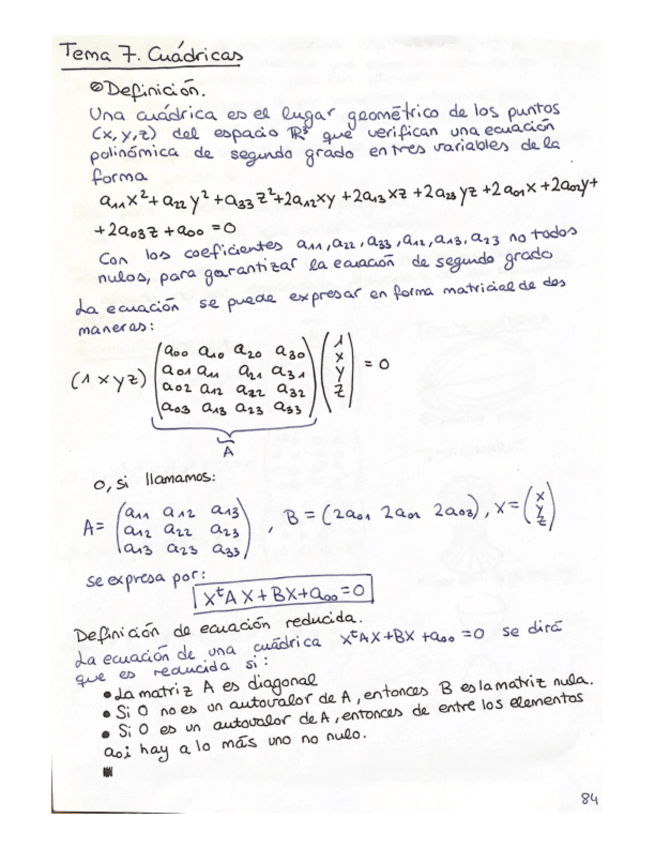 Tema 7. Cuádricas
Definición.
Una cuádrica es el lugar geométrico de los puntos
(x, y, z) del espacio ℝ³ que verifican una ecuación
polinómica de segundo grado en tres variables de la
forma
a₁₁x² + a₂₂y² + a₃₃z² + 2a₁₂xy + 2a₁₃xz + 2a₂₃yz + 2a₀₁x + 2a₀₂y +
+ 2a₀₃z + a₀₀ = 0
Con los coeficientes a₁₁, a₂₂, a₃₃, a₁₂, a₁₃, a₂₃ no todos
nulos, para garantizar la ecuación de segundo grado
La ecuación se puede expresar en forma matricial de dos
maneras:
(1 x y z) (a₀₀ a₁₀ a₂₀ a₃₀
a₀₁ a₁₁ a₂₁ a₃₁
a₀₂ a₁₂ a₂₂ a₃₂
a₀₃ a₁₃ a₂₃ a₃₃) (1 x y z) = 0
A
O, si llamamos:
A = (a₁₁ a₁₂ a₁₃
a₁₂ a₂₂ a₂₃
a₁₃ a₂₃ a₃₃), B = (2a₀₁ 2a₀₂ 2a₀₃), X = (x y z)
se expresa por:
XᵗAX + BX + a₀₀ = 0
Definición de ecuación reducida.
La ecuación de una cuádrica XᵗAX + BX + a₀₀ = 0 se dirá
que es reducida si:
• La matriz A es diagonal
• Si 0 no es un autovalor de A, entonces B es la matriz nula.
• Si 0 es un autovalor de A, entonces de entre los elementos
a₀ᵢ hay a lo más uno no nulo.
84